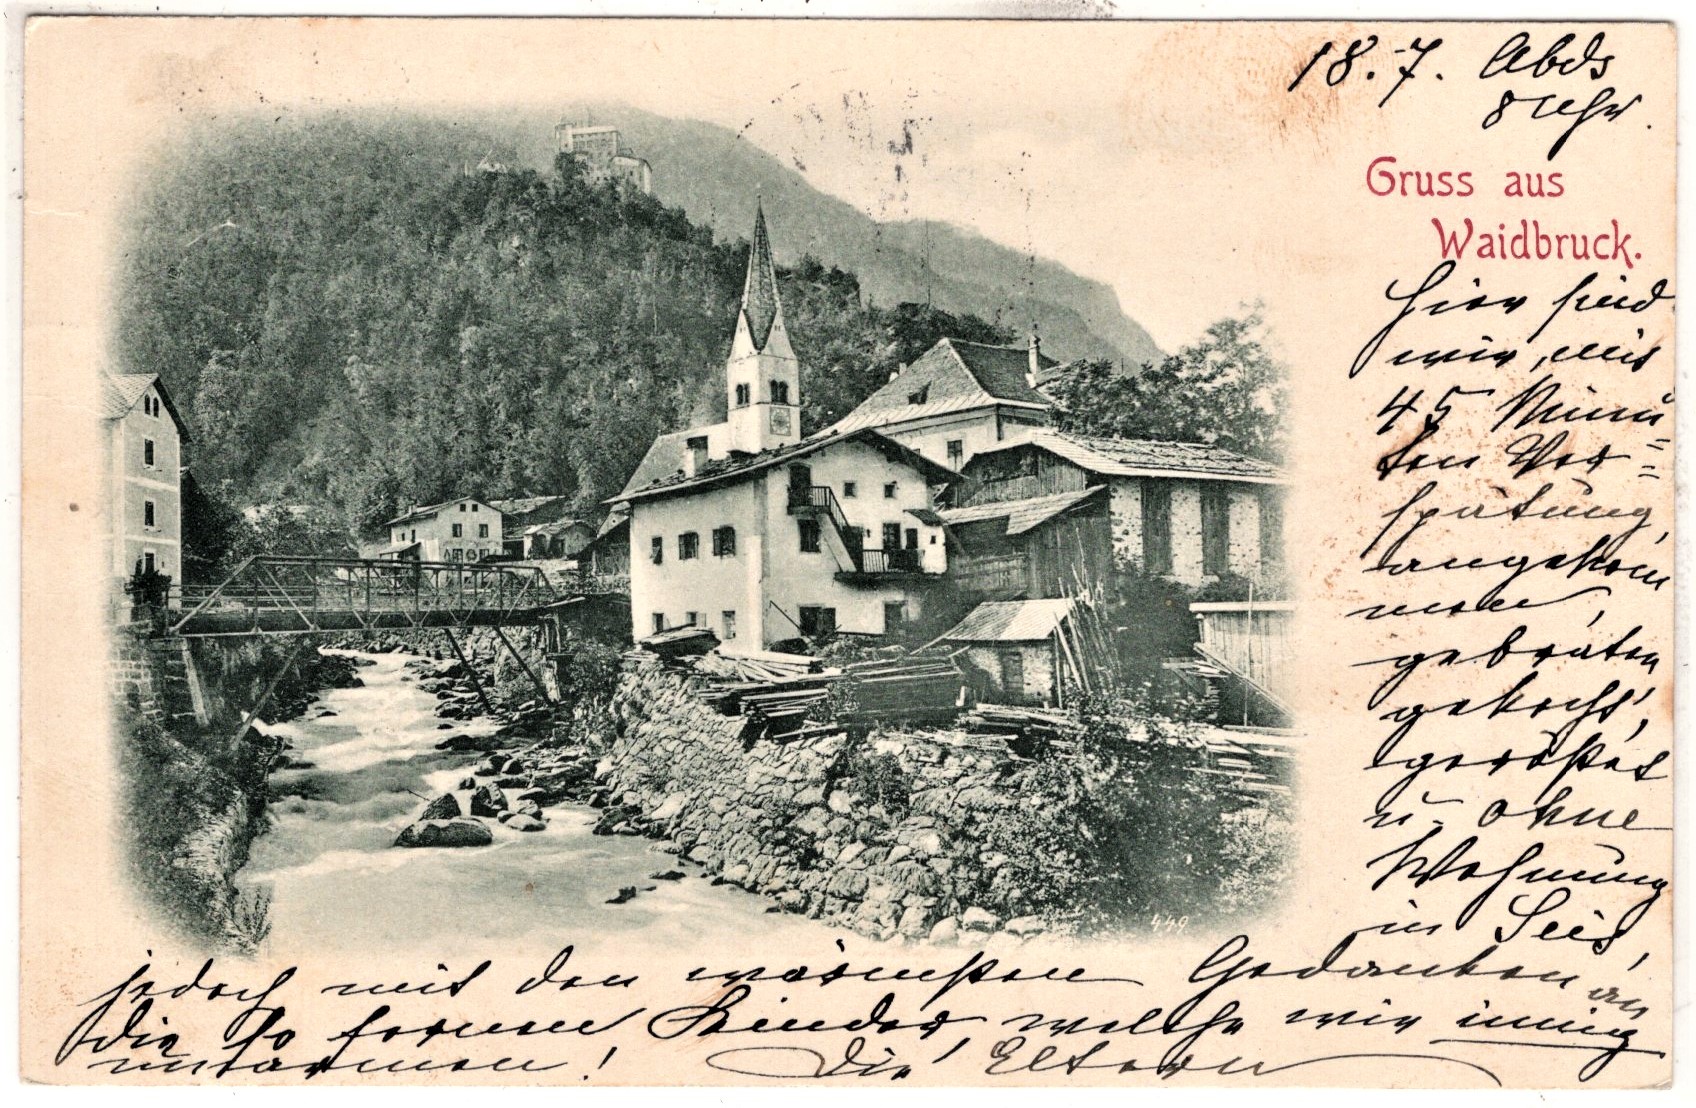 18. 7. Abds
8 Uhr.
Gruss aus
Waidbruck.
Hier sind
wir, mit
45 Minu=
ten Ver=
spätung,
angekom
men,
gebraten
gekocht,
geröstet
u. ohne
Wohnung
in Seis,
jedoch mit den wärmsten Gedanken an
die so fernen Kinder, welche wir innig
umarmen! Die Eltern
449